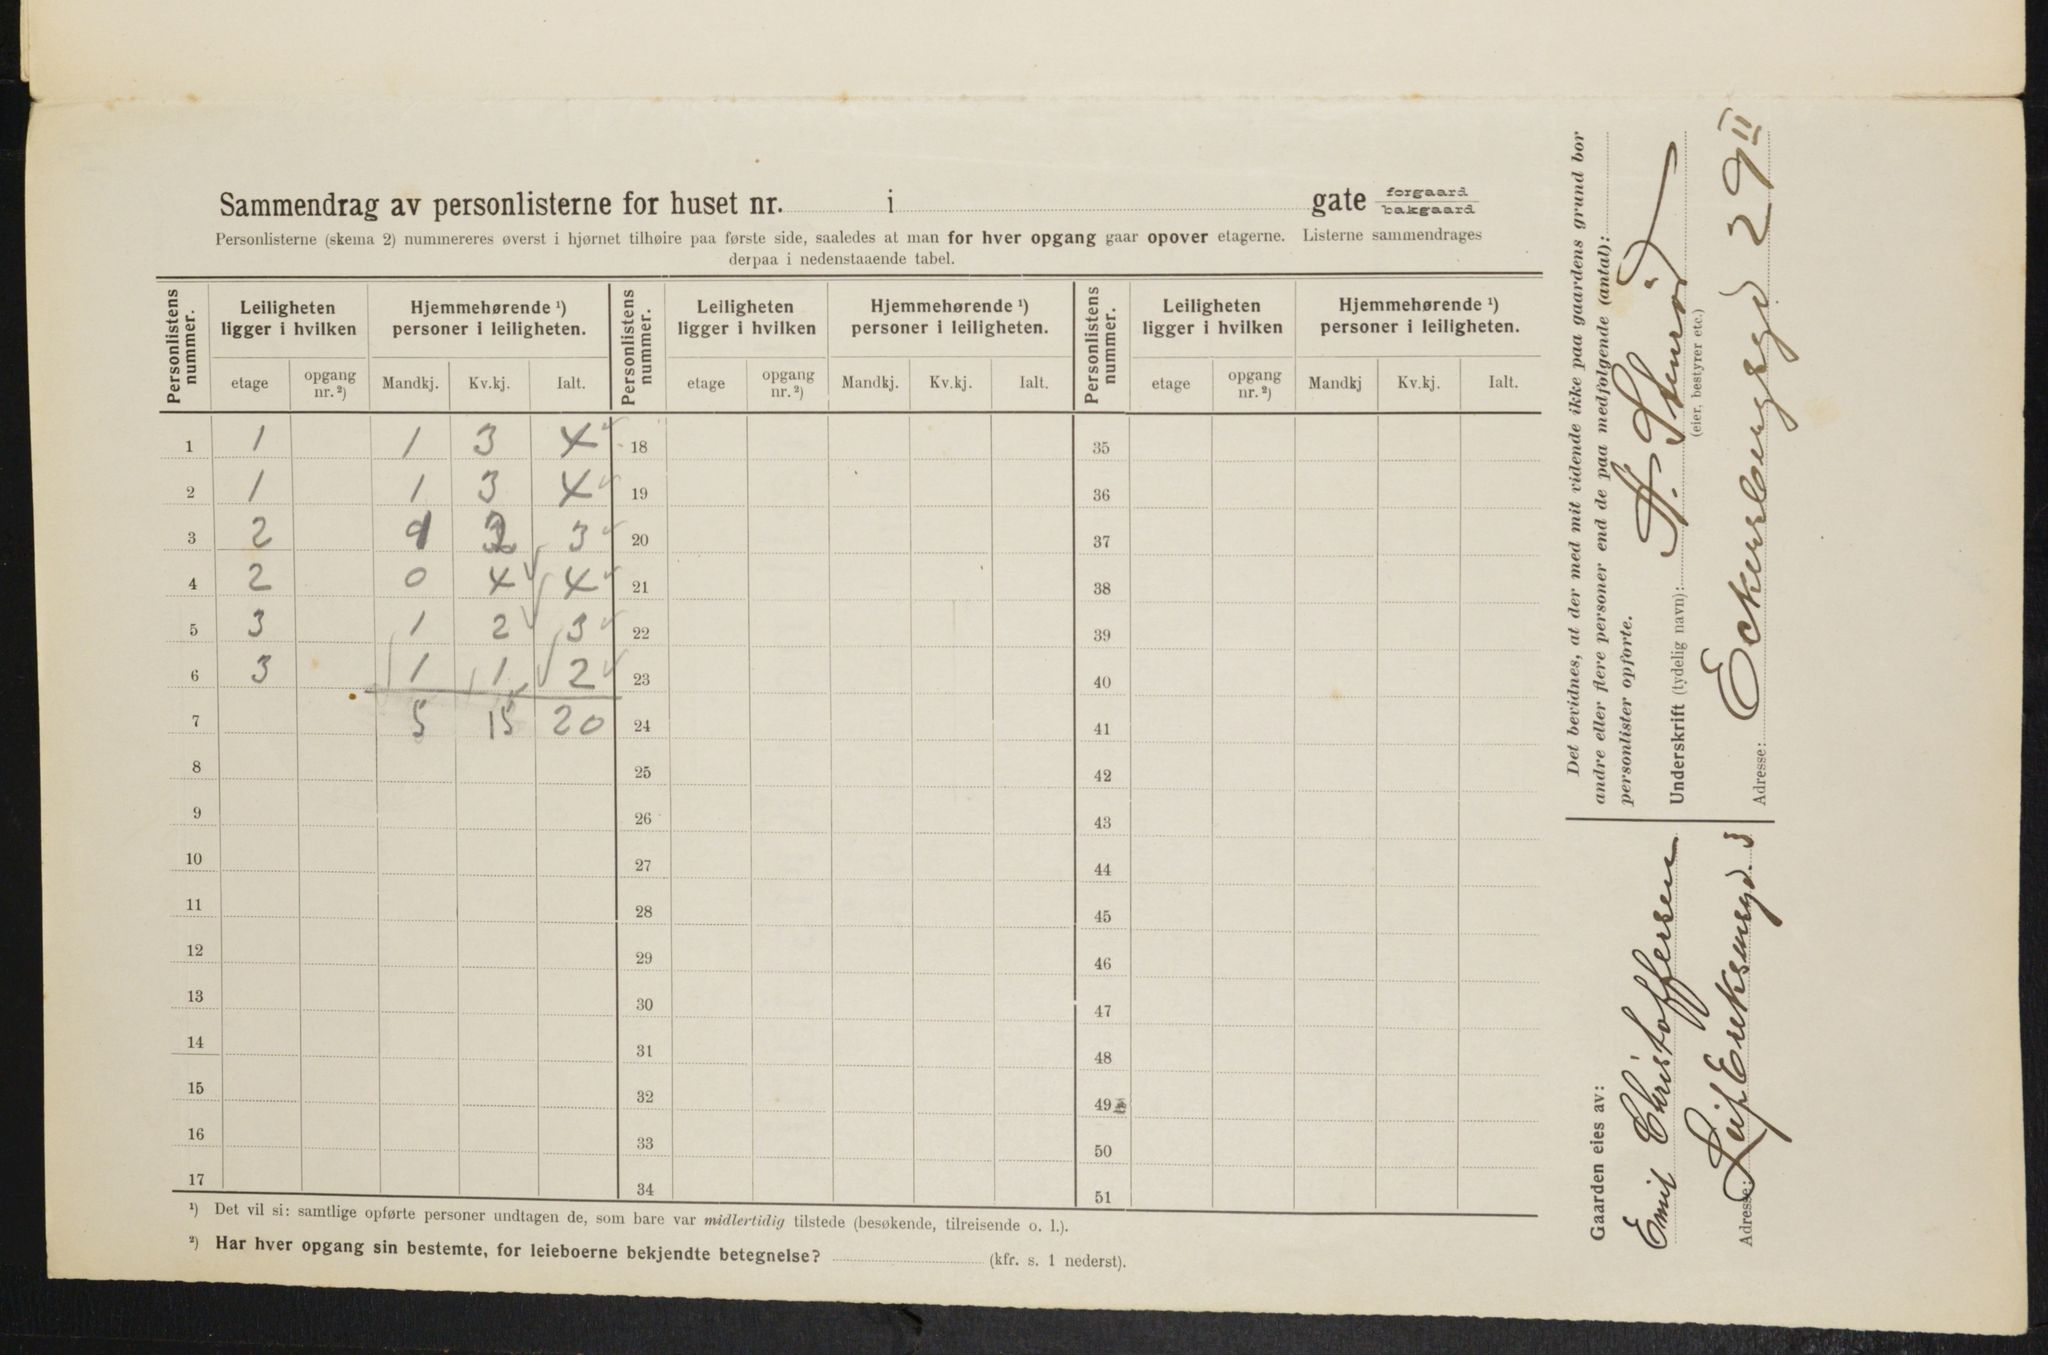 Sammendrag av personlisterne for huset nr. i gate forgaard bakgaard
Personlisterne (skema 2) nummereres øverst i hjørnet tilhøire paa første side, saaledes at man for hver opgang gaar opover etagerne. Listerne sammendrages
derpaa i nedenstaaende tabel.
Personlistens nummer. Leiligheten ligger i hvilken Hjemmehørende ¹) personer i leiligheten. Personlistens nummer. Leiligheten ligger i hvilken Hjemmehørende ¹) personer i leiligheten. Personlistens nummer. Leiligheten ligger i hvilken Hjemmehørende ¹) personer i leiligheten.
etage opgang nr. ²) Mandkj. Kv.kj. Ialt. etage opgang nr. ²) Mandkj. Kv.kj. Ialt. etage opgang nr. ²) Mandkj Kv.kj. Ialt.
1 1 1 3 4 18 35
2 1 1 3 4 19 36
3 2 1 2 3 20 37
4 2 0 4 4 21 38
5 3 1 2 3 22 39
6 3 1 1 2 23 40
7 5 15 20 24 41
8 25 42
9 26 43
10 27 44
11 28 45
12 29 46
13 30 47
14 31 48
15 32 49
16 33 50
17 34 51
¹) Det vil si: samtlige opførte personer undtagen de, som bare var midlertidig tilstede (besøkende, tilreisende o. l.).
²) Har hver opgang sin bestemte, for leieboerne bekjendte betegnelse? (kfr. s. 1 nederst).
Det bevidnes, at der med mit vidende ikke paa gaardens grund bor
andre eller flere personer end de paa medfølgende (antal):
personlister opførte.
Underskrift (tydelig navn):
(eier, bestyrer etc.)
Adresse: Eckersbergsgd 29 II
Gaarden eies av:
Emil Christoffersen
Adresse: Leif Eriksensgd. 3